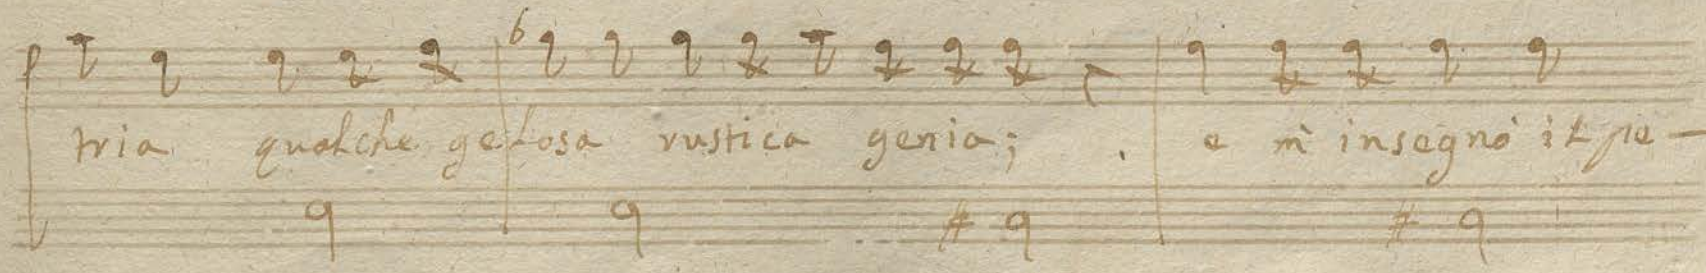 tria qualche gelosa rustica genia; e m'insegnò il pe-